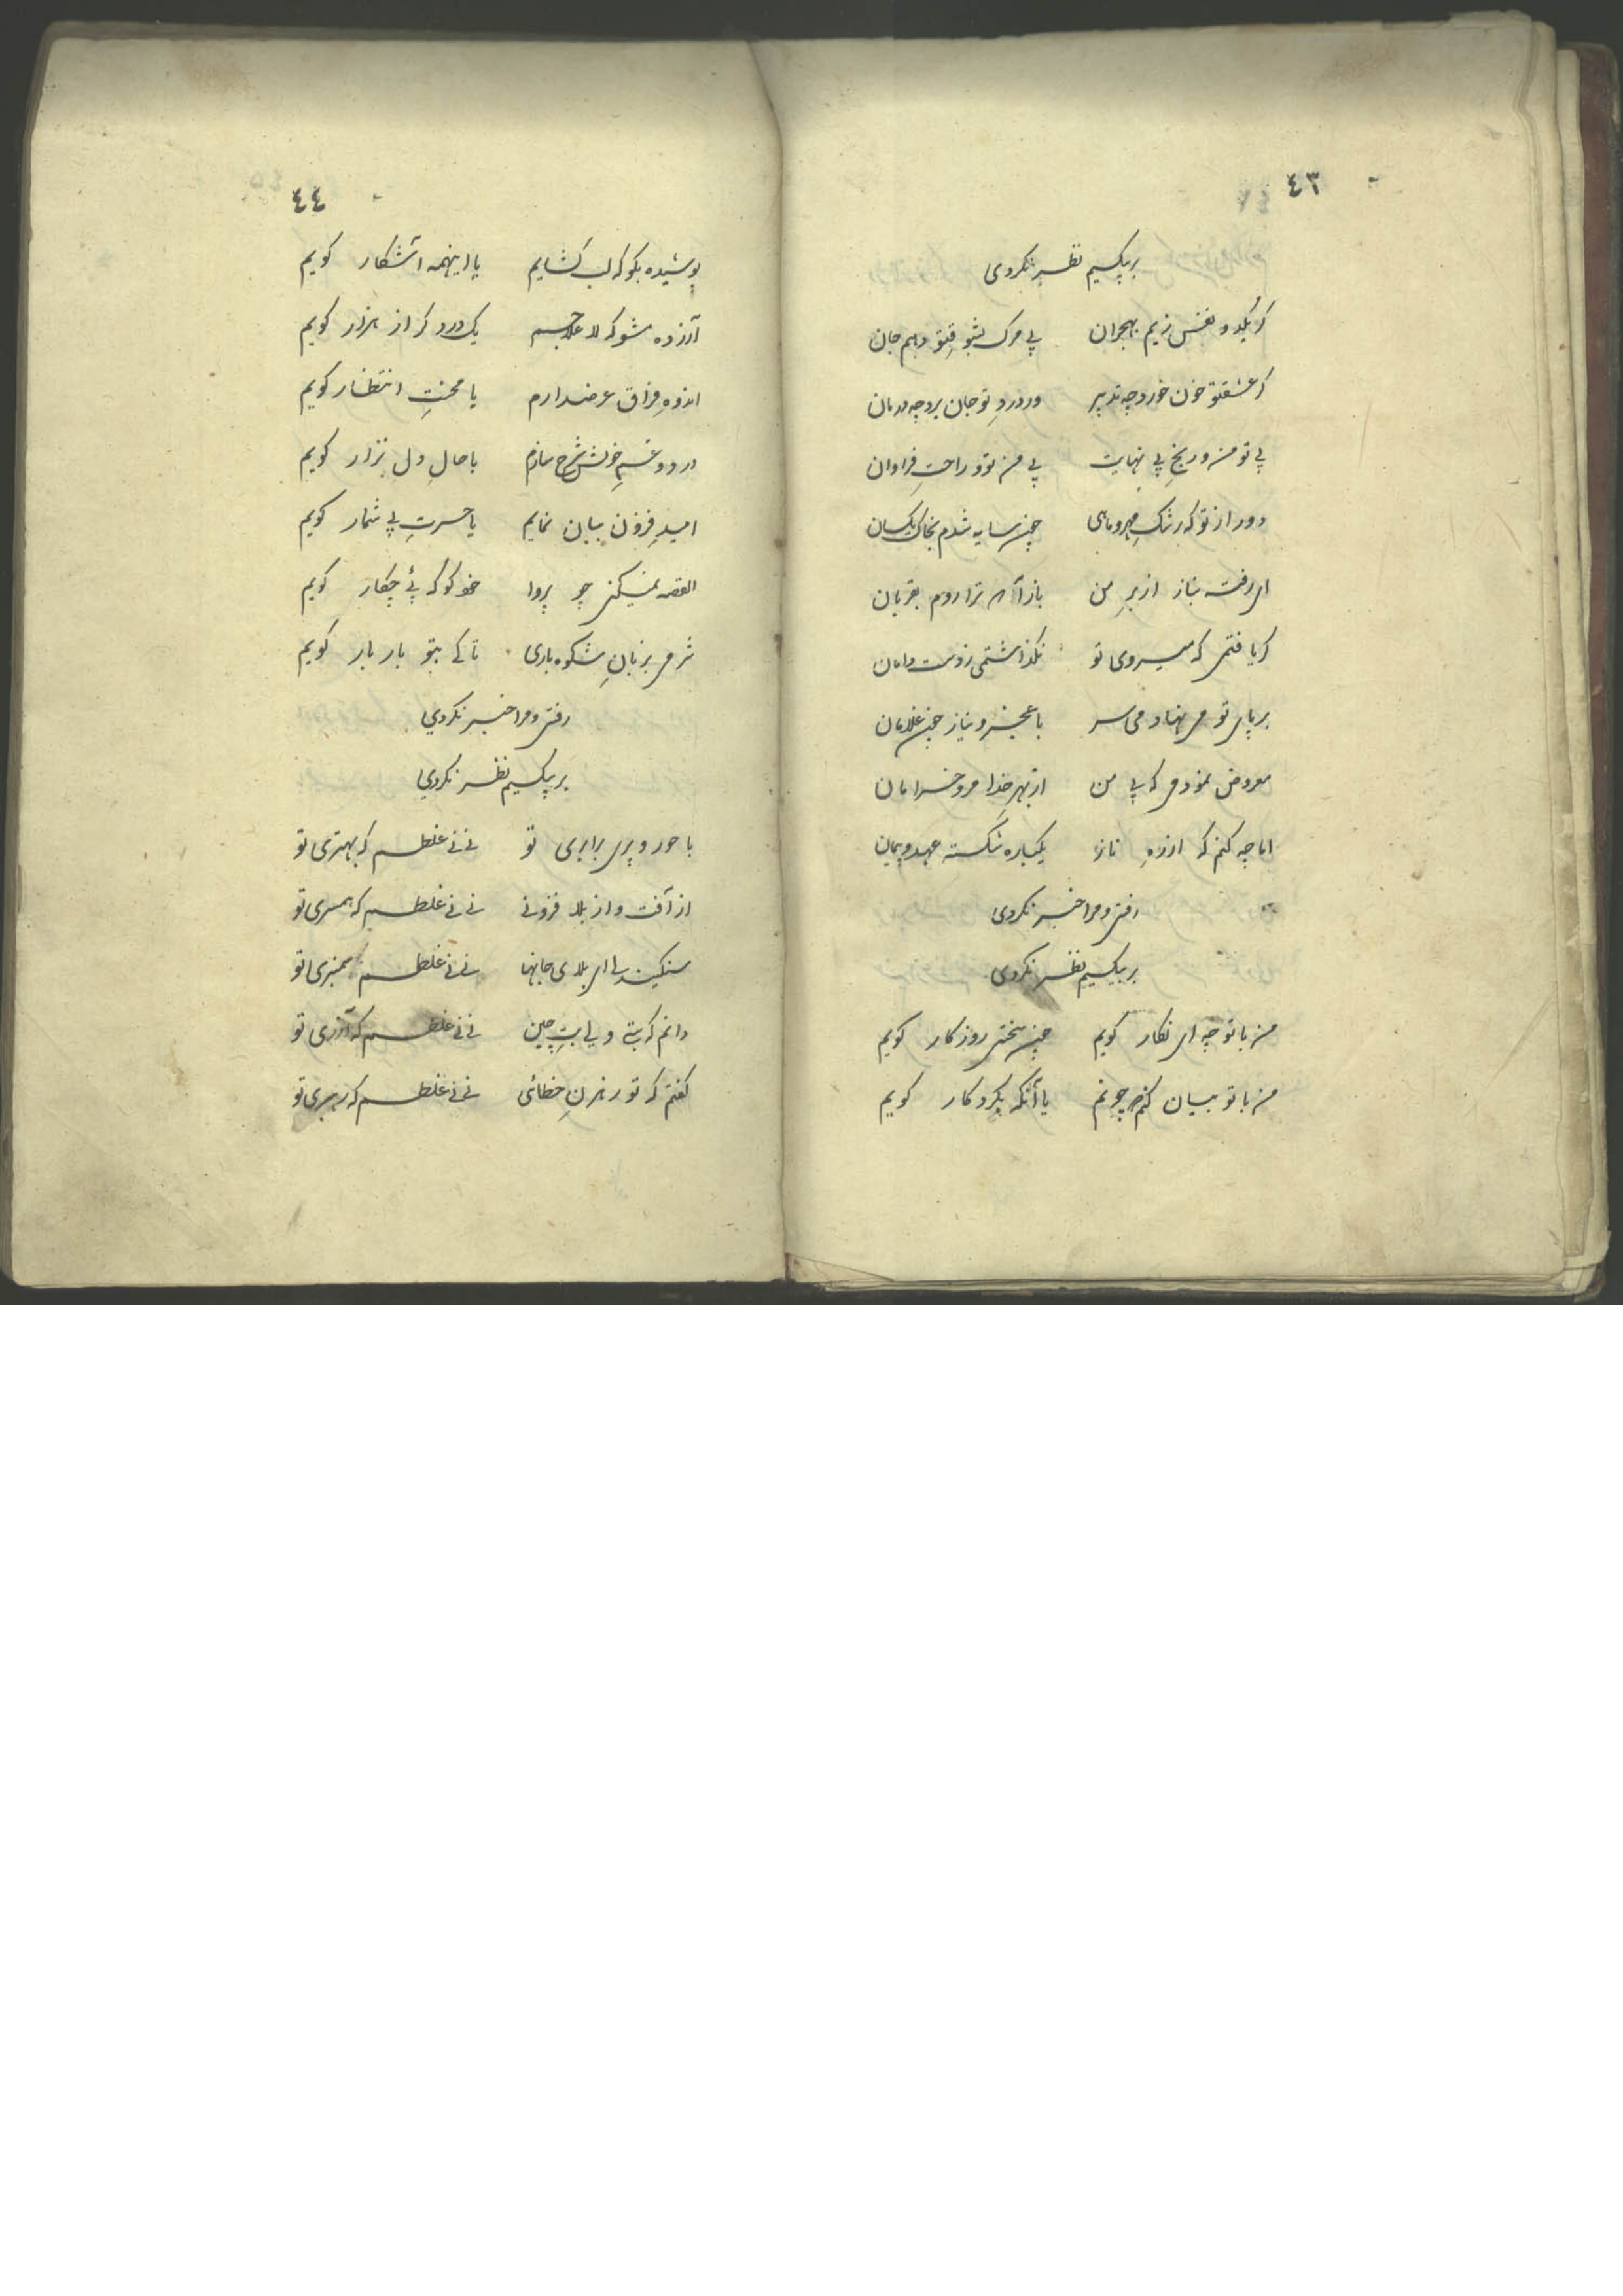 ٤٣
بربیکسیم نظر نکردی
کر یکدو نفس زیم بهجران بی مرک بشوقتو دهم جان
کر عشقتو خون خورد چه تدبیر ور درد تو جان برد چه درمان
بی تو من و رنج بی نهایت بی من تو و راحت فراوان
دور از تو که رشک مهر و ماهی چون سایه شدم بخاک یکسان
ای رفته بناز از بر من بازآ که ترا روم بقربان
کر یافتمی که میروی تو نکذاشتمی ز دست دامان
بر پای تو می نهادمی سر با عجز و نیاز چون غلامان
معروض نمودمی که بی من از بهر خدا مرو خرامان
اما چه کنم که از ره ناز یکباره شکسته عهد و پیمان
رفتی و مرا خبر نکردی
بربیکسیم نظر نکردی
من با تو چه ای نکار کویم چون سختی روزکار کویم
من با تو بیان کنم چونم یا آنکه بکردکار کویم
٤٤
پوشیده بکو که لب کشایم یا اینهمه آشکار کویم
آزرده مشو که لا علاجم یک درد کر از هزار کویم
اندوه فراق عرضدارم یا محنت انتظار کویم
درد و غم خویش شرح سازم یا حال دل نزار کویم
امید فزون بیان نمایم یا حسرت بی شمار کویم
القصه نمیکنی چو پروا خود کو که پئ چکار کویم
شرمی بزبان شکوه باری تا کی بتو بار بار کویم
رفتی و مرا خبر نکردی
بر بیکسیم نظر نکردی
با حور و پری برابری تو نی نی غلطم که بهتری تو
از آفت و از بلا فزونی نی نی غلطم که همسری تو
سنکین دلی ای بلای جانها نی نی غلطم سمنبری تو
دانم که بتی ولی بت چین نی نی غلطم که آزری تو
کفتم که تو رهزن خطائی نی نی غلطم که رهبری تو